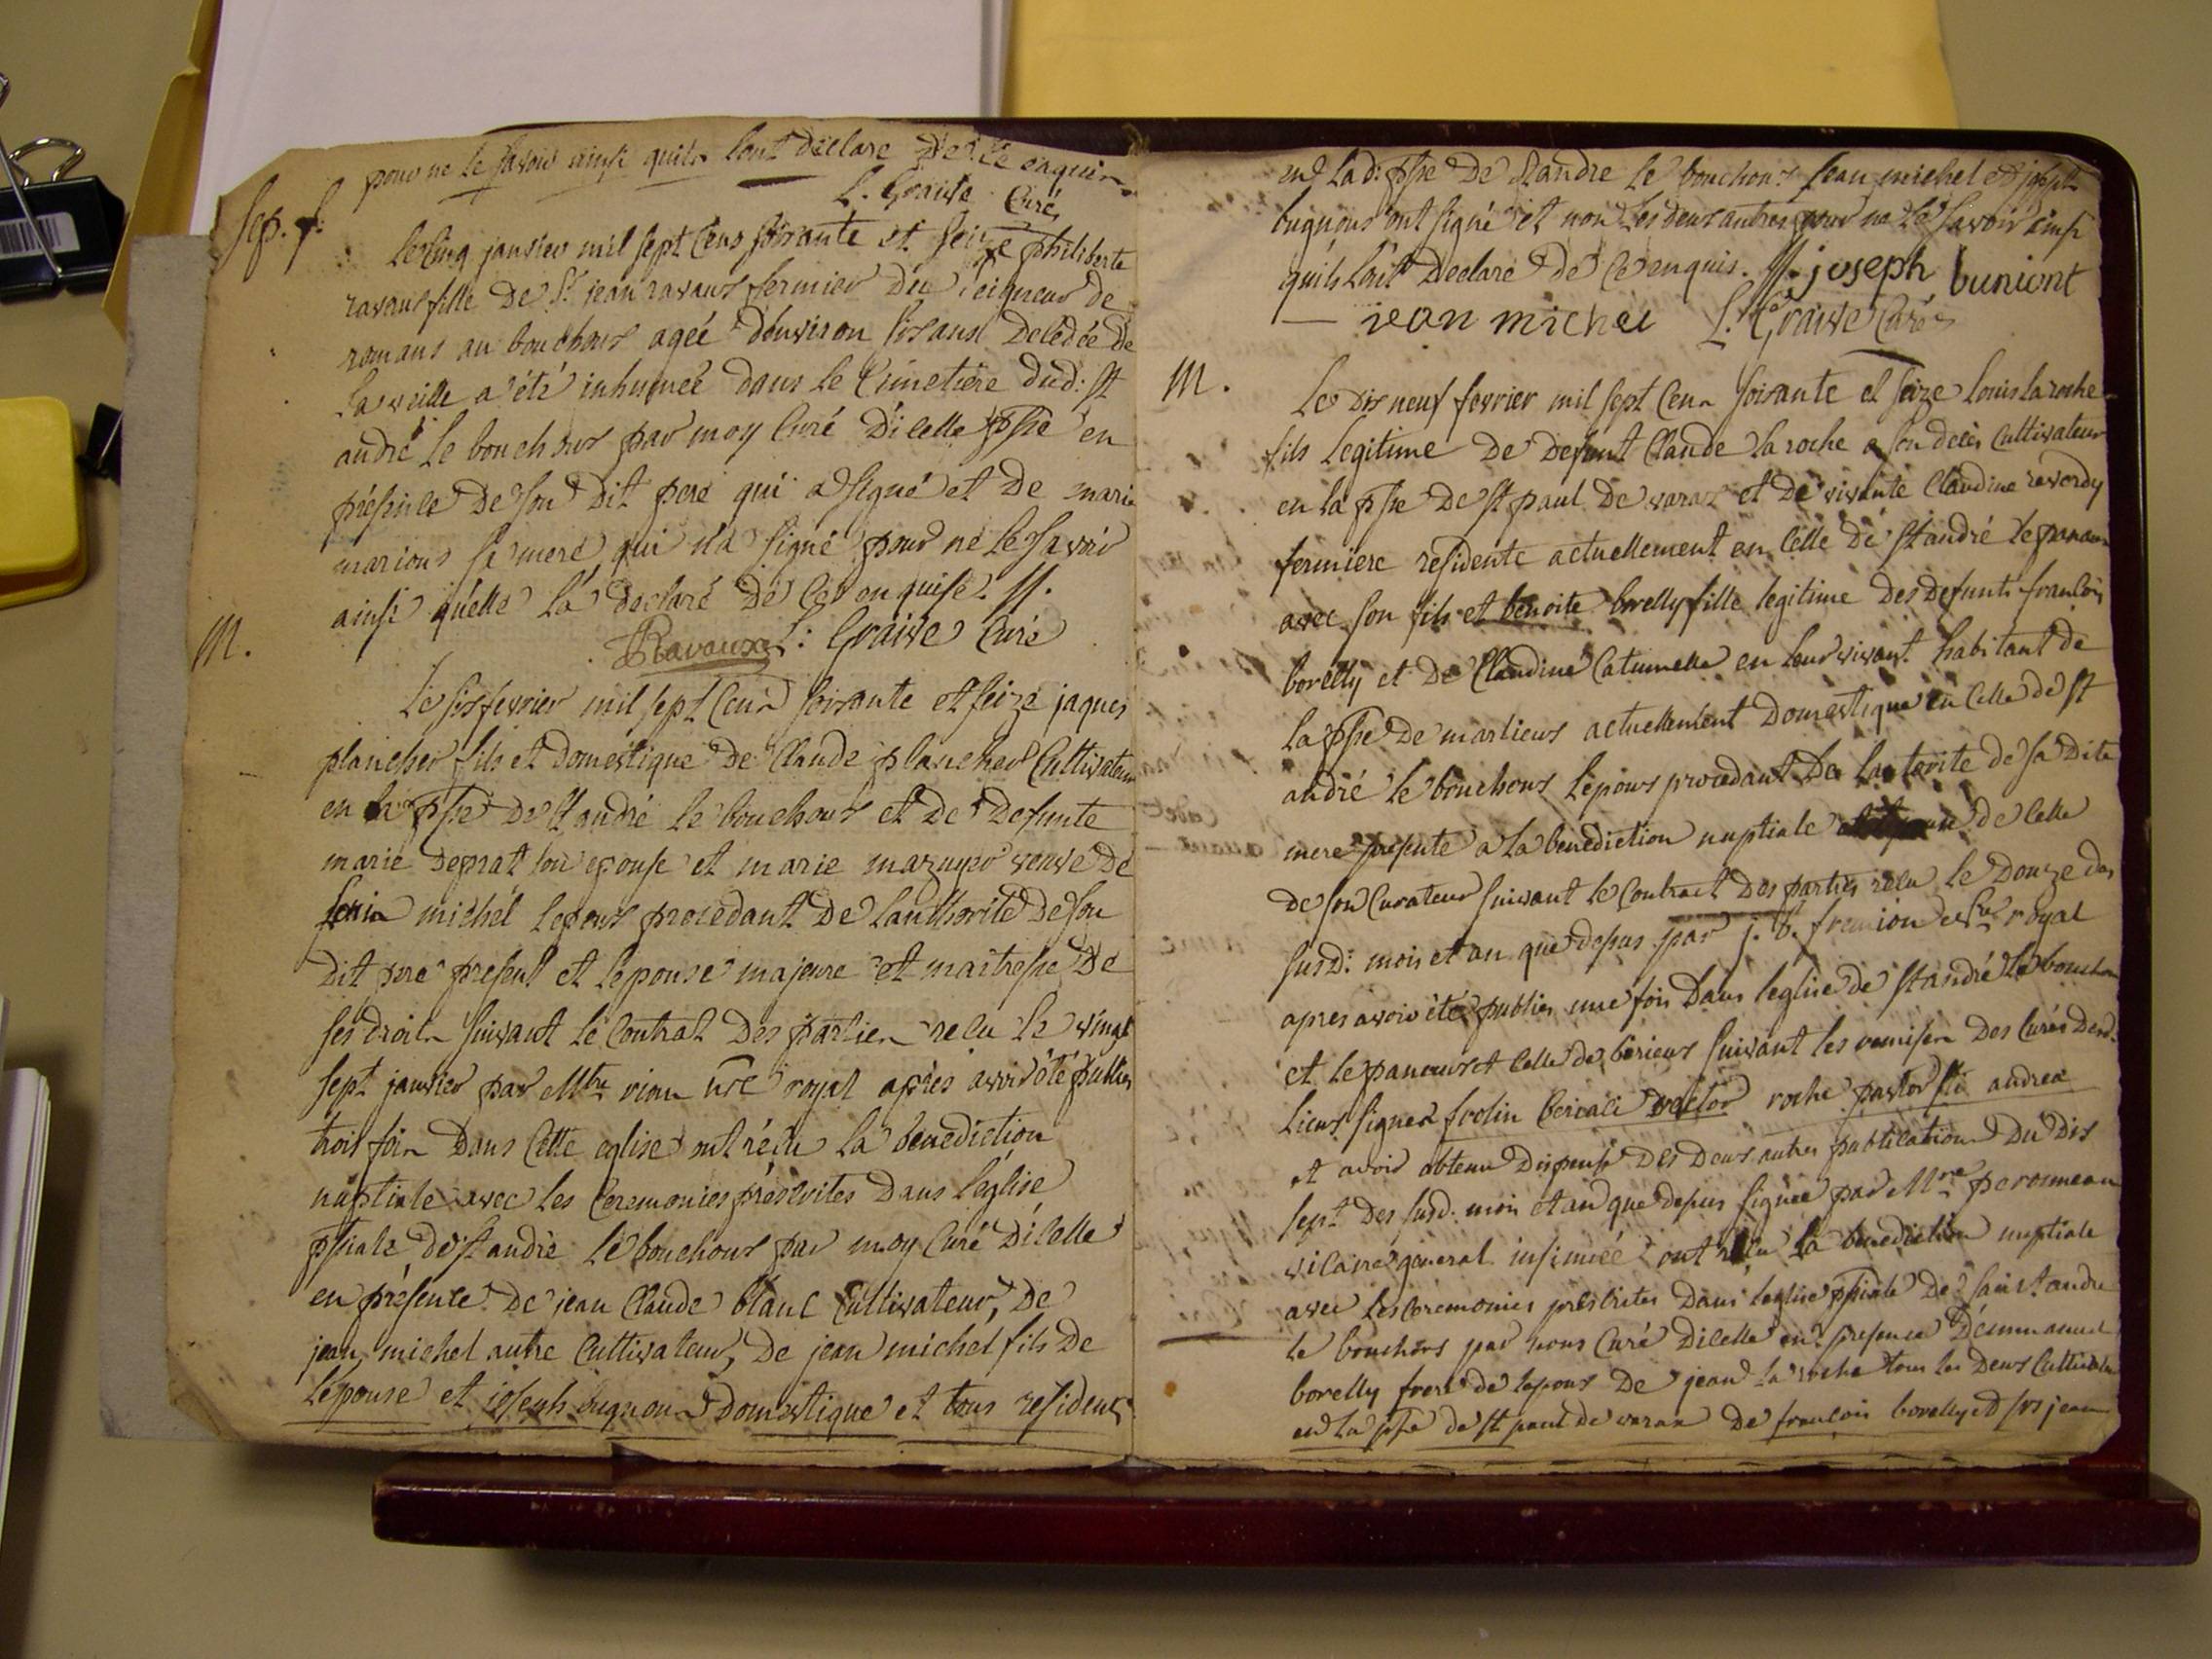 pour ne le savoir ainsi quils lont déclare de ce enquis
L. Graise Curé
Sep. f.
Le cinq janvier mil sept cens soisante et seize philiberte
ravaus fille de Sr. jean ravaus fermier du seigneur de
romans au bouchous agée denviron sis ans decedée de
la veille a été inhumée dans le Cimetiere dud: st
andré le bouchous par moy Curé dicelle psse en
présence de son dit pere qui a signé et de marie
marions sa mere qui n'a signé pour ne le savoir
ainsi quelle la declaré de ce enquise. //.
Ravaux L: Graise Curé
M.
Le sis fevrier mil sept cens soisante et seize jaques
plancher fils et domestique de Claude plancher Cultivateur
en la psse de st andré le bouchous et de defunte
marie deprat son epouse et marie mazuyer veuve de
michel lepous procedant de lauthorité de son
dit pere present et lepouse majeure et maitresse de
ses droits suivant le contrat des parties recu le vingt
sept janvier par Mtre vion nre royal après avoir été publies
trois fois dans cette eglise ont récu la benediction
nuptiale avec les Ceremonies préscrites dans l'église
pssiale de st andré le bouchous par moy Curé dicelle
en présence de jean Claude blanc Cultivateur, de
jean michel autre Cultivateur, de jean michel fils de
lépouse et joseph bugnon domestique et tous residents
en lad: psse de st andre le bouchous jean michel et joseph
bugnons ont signé et non les deus autres pour ne le savoir ainsi
quils lont declaré de ce enquis. //. joseph buniont
jean michel L. Graise Curé
M.
Le dis neuf fevrier mil sept cens soisante et seize louis la roche
fils legitime de defunt Claude la roche a son decès Cultivateur
en la psse de st paul de varax et de vivante Claudine reverdy
fermiere residente actuellement en celle de st andré le panous
avec son fils et benoite borelly fille legitime des defunts francois
borelly et de Claudine Catumelle en leur vivant habitant de
la psse de marlieus actuellement domestique en celle de st
andré le bouchous lepous procedant de la torité de sa dite
mere presente a la benediction nuptiale de celle
de son Curateur suivant le Contract des parties recu le douze des
susd: mois et an que depus par j. B. fremion nre royal
apres avoir été publies une fois dans leglise de st andré le bouchous
et le panous et celle de birieus suivant les remises des Curés desd:
lieus signes frolin rector roche pastor sti andreæ
et avoir obtenu dispense des deus autres publications du dis
sept des susd: mois et an que depus signée par Mre peronneau
vicaire general insinuée ont récu la benediction nuptiale
avec les Ceremonies préscrites dans leglise pssiale de saint andre
le bouchous par nous Curé dicelle en presence d'émmanuel
borelly frere de lepous de jean la roche tous les deus Cultivateurs
en la psse de st paul de varax de francois borelly et jean